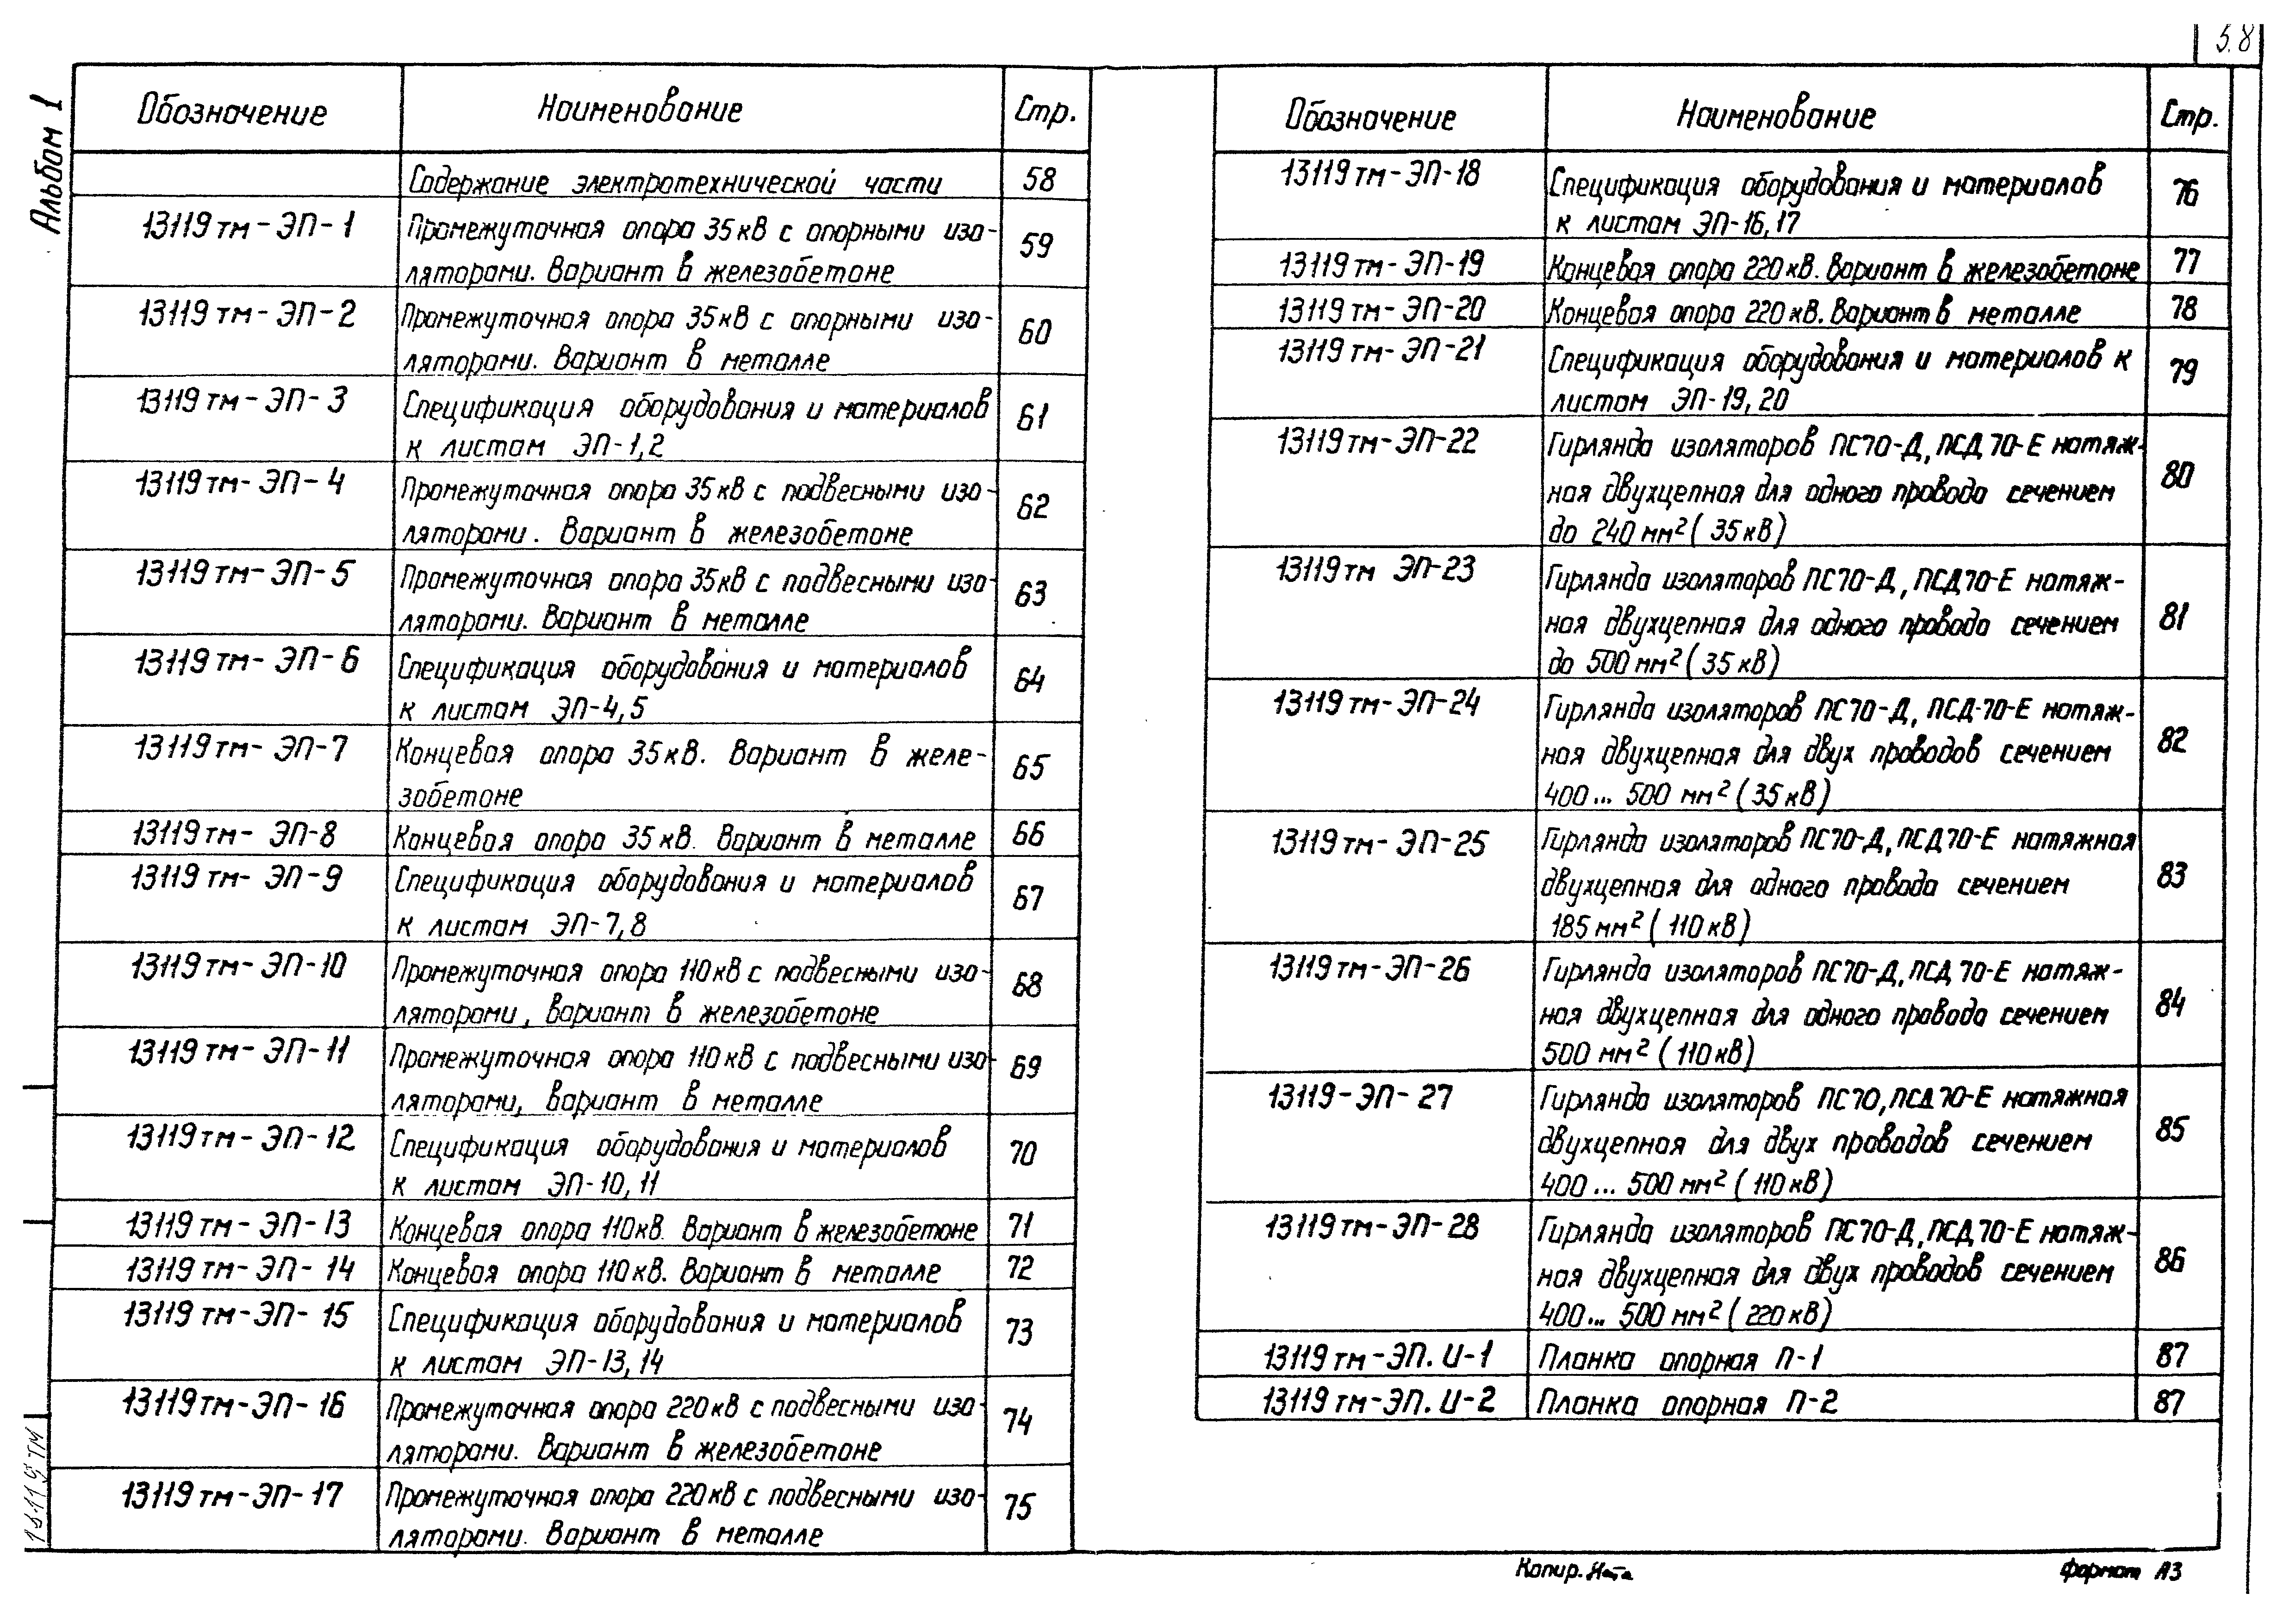 58
Альбом 1
Обозначение Наименование Стр.
Содержание электротехнической части 58
13119тм-ЭП-1 Промежуточная опора 35кВ с опорными изо- 59
ляторами. Вариант в железобетоне
13119тм-ЭП-2 Промежуточная опора 35кВ с опорными изо- 60
ляторами. Вариант в металле
13119тм-ЭП-3 Спецификация оборудования и материалов 61
к листам ЭП-1,2
13119тм-ЭП-4 Промежуточная опора 35кВ с подвесными изо- 62
ляторами. Вариант в железобетоне
13119тм-ЭП-5 Промежуточная опора 35кВ с подвесными изо- 63
ляторами. Вариант в металле
13119тм-ЭП-6 Спецификация оборудования и материалов 64
к листам ЭП-4,5
13119тм-ЭП-7 Концевая опора 35кВ. Вариант в желе- 65
зобетоне
13119тм-ЭП-8 Концевая опора 35кВ. Вариант в металле 66
13119тм-ЭП-9 Спецификация оборудования и материалов 67
к листам ЭП-7,8
13119тм-ЭП-10 Промежуточная опора 110кВ с подвесными изо- 68
ляторами, вариант в железобетоне
13119тм-ЭП-11 Промежуточная опора 110кВ с подвесными изо- 69
ляторами, вариант в металле
13119тм-ЭП-12 Спецификация оборудования и материалов 70
к листам ЭП-10,11
13119тм-ЭП-13 Концевая опора 110кВ. Вариант в железобетоне 71
13119тм-ЭП-14 Концевая опора 110кВ. Вариант в металле 72
13119тм-ЭП-15 Спецификация оборудования и материалов 73
к листам ЭП-13,14
13119тм-ЭП-16 Промежуточная опора 220кВ с подвесными изо- 74
ляторами. Вариант в железобетоне
13119тм-ЭП-17 Промежуточная опора 220кВ с подвесными изо- 75
ляторами. Вариант в металле
Обозначение Наименование Стр.
13119тм-ЭП-18 Спецификация оборудования и материалов 76
к листам ЭП-16,17
13119тм-ЭП-19 Концевая опора 220кВ. Вариант в железобетоне 77
13119тм-ЭП-20 Концевая опора 220кВ. Вариант в металле 78
13119тм-ЭП-21 Спецификация оборудования и материалов к 79
листам ЭП-19,20
13119тм-ЭП-22 Гирлянда изоляторов ПС70-Д, ПСД70-Е натяж- 80
ная двухцепная для одного провода сечением
до 240 мм² (35кВ)
13119тм ЭП-23 Гирлянда изоляторов ПС70-Д, ПСД70-Е натяж- 81
ная двухцепная для одного провода сечением
до 500 мм² (35кВ)
13119тм-ЭП-24 Гирлянда изоляторов ПС70-Д, ПСД-70-Е натяж- 82
ная двухцепная для двух проводов сечением
400... 500 мм² (35кВ)
13119тм-ЭП-25 Гирлянда изоляторов ПС70-Д, ПСД70-Е натяжная 83
двухцепная для одного провода сечением
185 мм² (110кВ)
13119тм-ЭП-26 Гирлянда изоляторов ПС70-Д, ПСД70-Е натяж- 84
ная двухцепная для одного провода сечением
500 мм² (110кВ)
13119-ЭП-27 Гирлянда изоляторов ПС70, ПСД70-Е натяжная 85
двухцепная для двух проводов сечением
400... 500 мм² (110кВ)
13119тм-ЭП-28 Гирлянда изоляторов ПС70-Д, ПСД70-Е натяж- 86
ная двухцепная для двух проводов сечением
400... 500 мм² (220кВ)
13119тм-ЭП.И-1 Планка опорная П-1 87
13119тм-ЭП.И-2 Планка опорная П-2 87
13119тм
Копир. Ната Формат А3